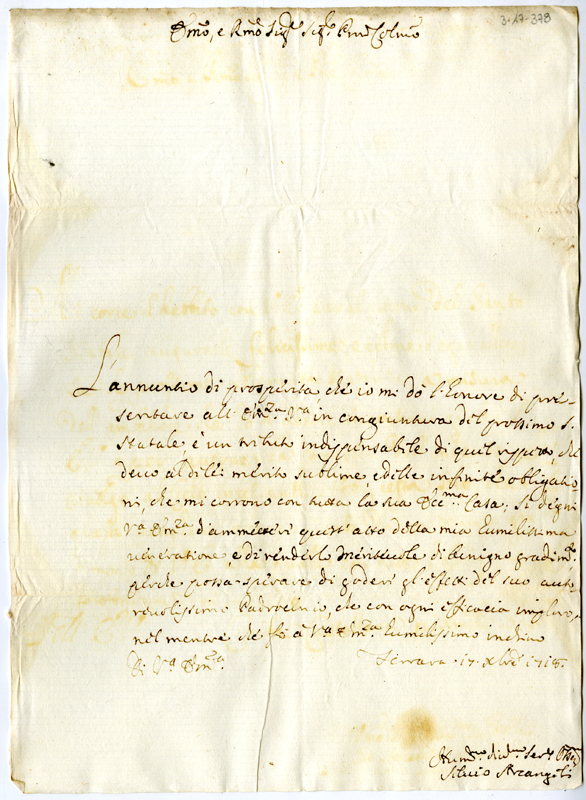 3-17-378
Em̃o, e Rm̃o Sig.r Sig.r Prõn Colm̃o
L'annuntio di prosperità, che io mi dò l'honore di pre=
sentare all' Em.za V.ra in congiuntura del prossimo S.
Natale, è un tributo indispensabile di quel rispetto, che
devo al di lei merito sublime, e delle infinite obligatio
ni, che mi corrono con tutta la sua Ecc.ma Casa; Si degni
V.ra Em.za d'ammettere quest'atto della mia humilissima
veneratione, e di renderlo meritevole di benigno gradim.to
perche possa sperare di godere gl'effetti del suo auto
revolissimo Padrocinio, che con ogni efficacia imploro,
nel mentre che fò à V.ra Em.za humilissimo inchino
Di V.ra Em.za Ferrara 17 xbre 1718.
Hum.mo Serv.
Silvio Arcangeli